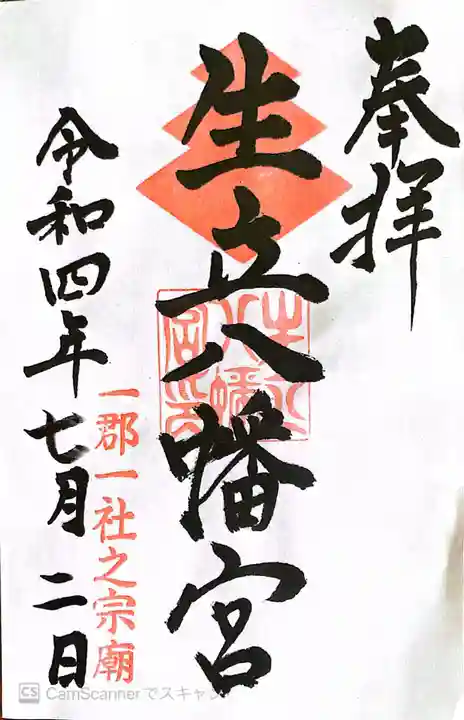 奉拝
生立八幡宮
生立八幡宮印
一郡一社之宗廟
令和四年七月二日
CS CamScannerでスキャン